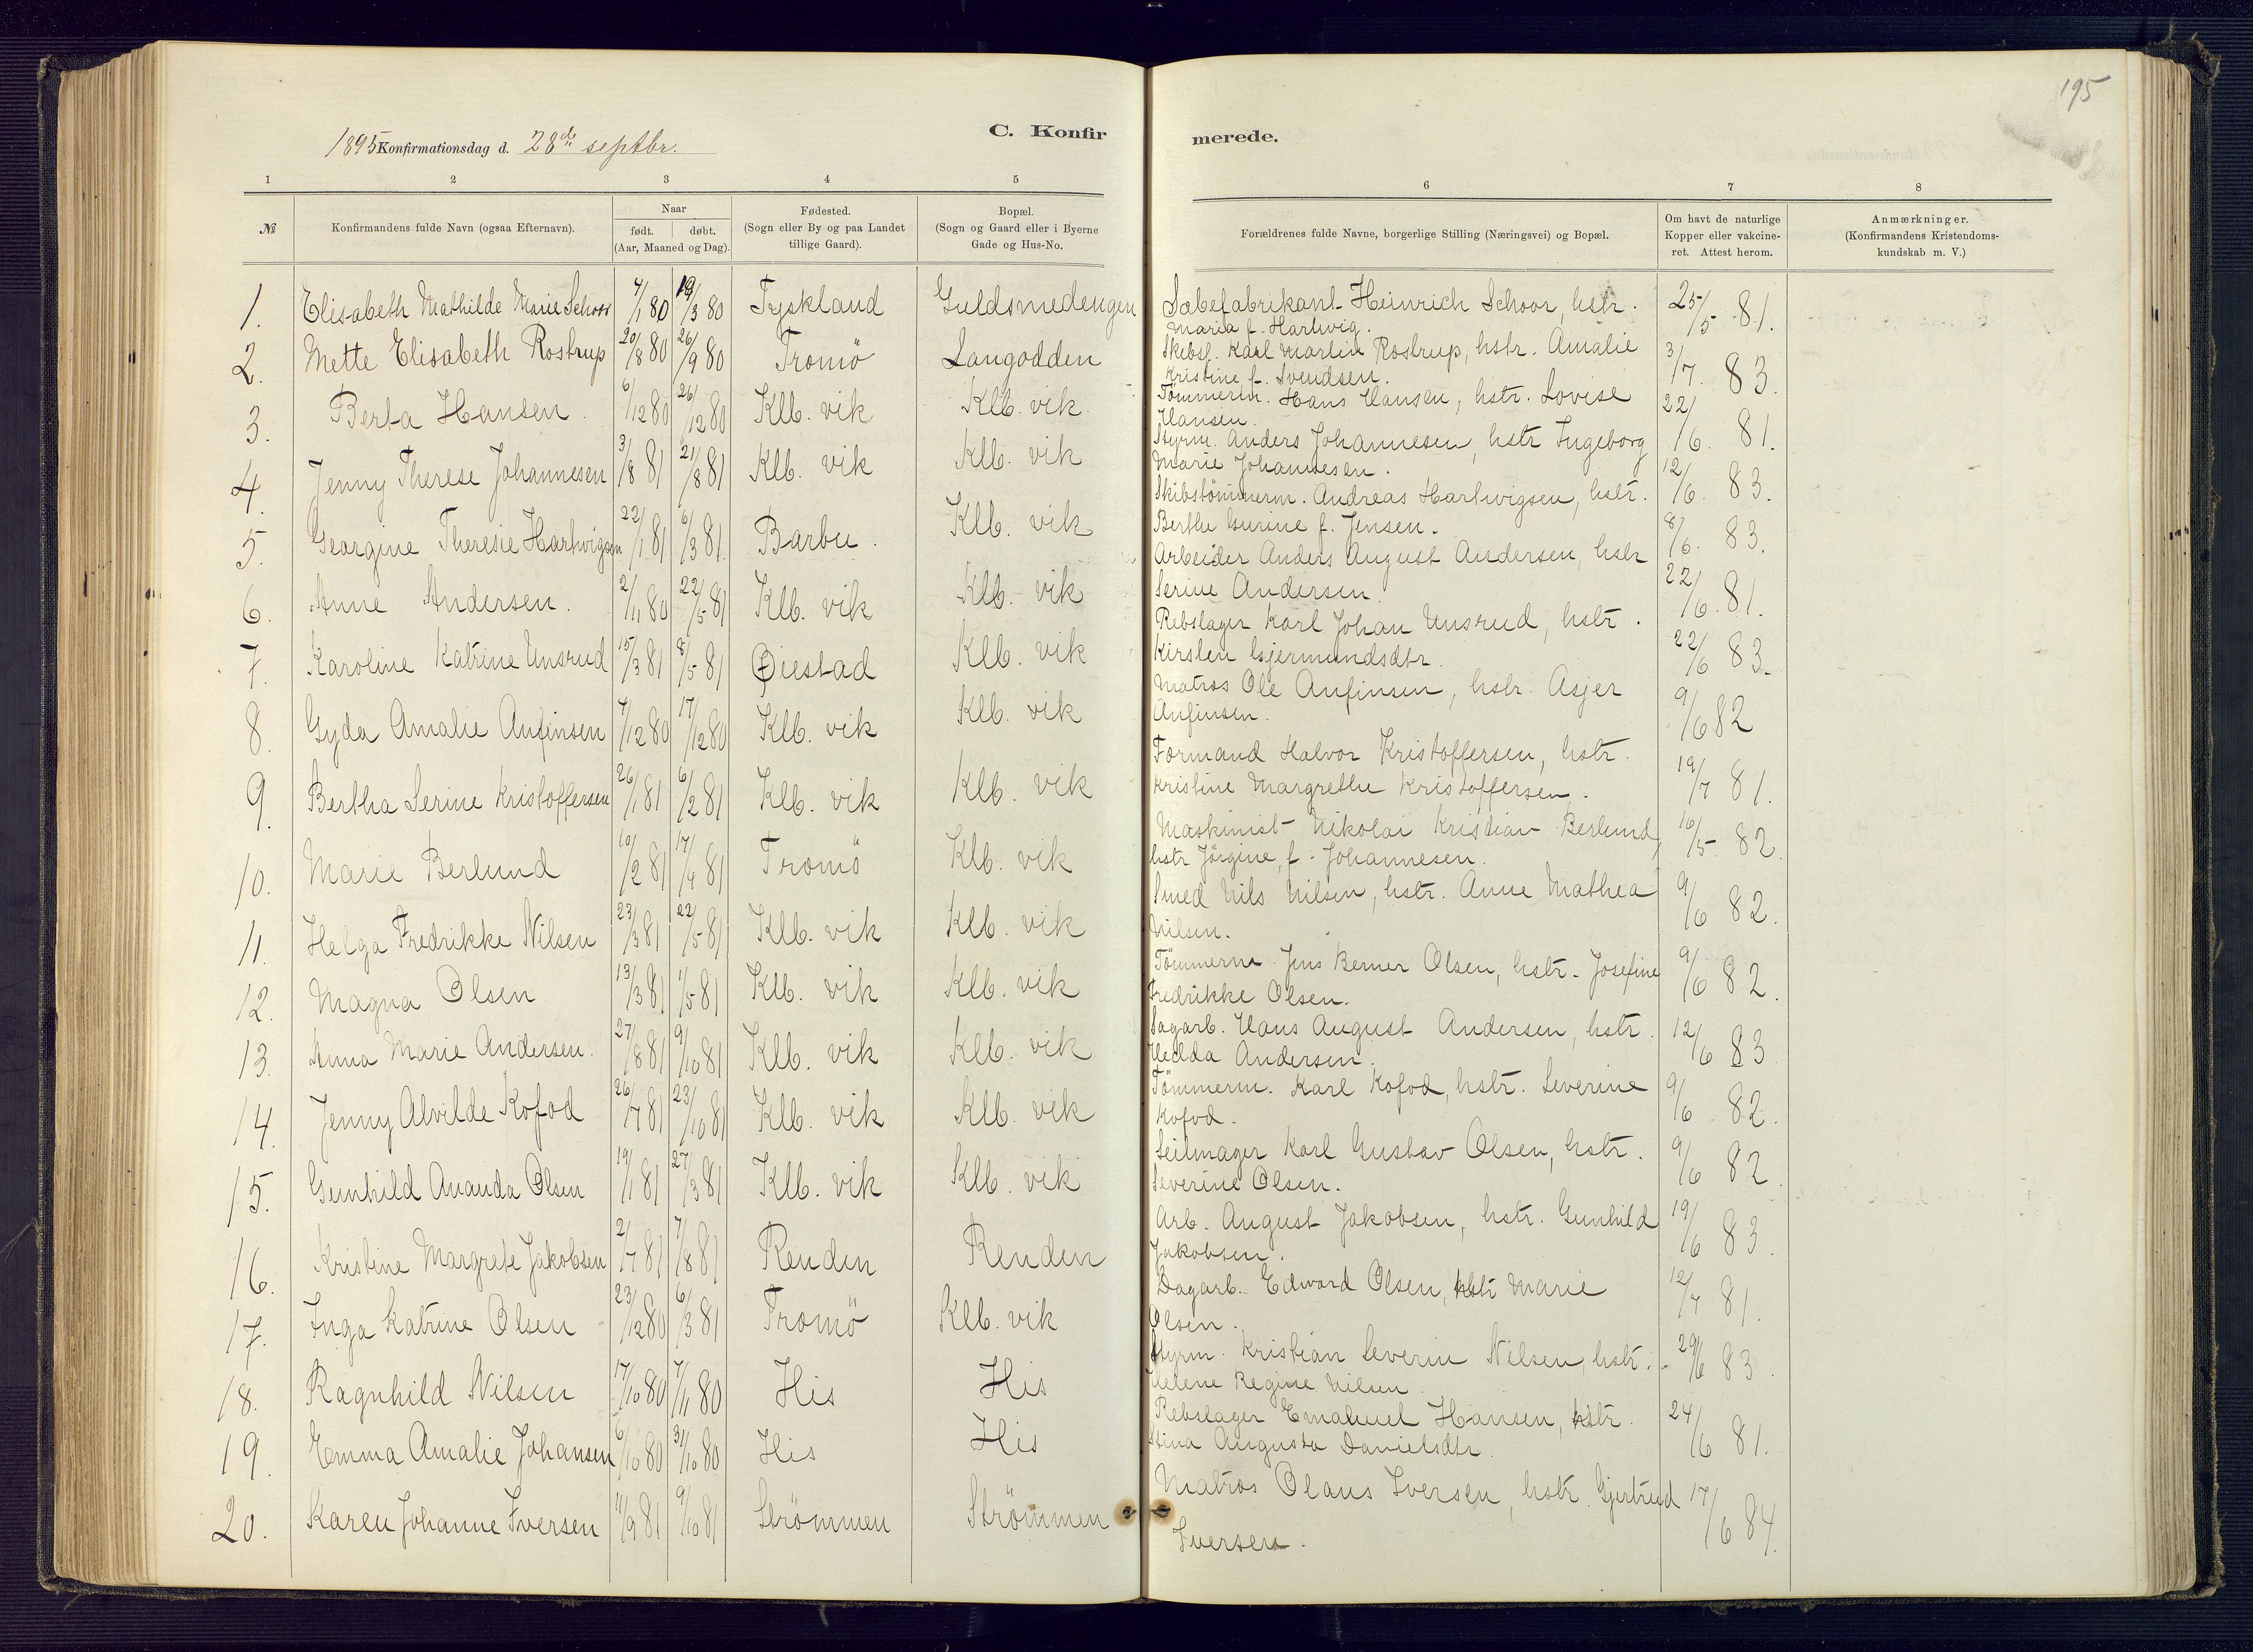 195
C. Konfirmerede.
1895 Konfirmationsdag d. 28de septbr.
1 2 3 4 5 6 7 8
№
Konfirmandens fulde Navn (ogsaa Efternavn).
Naar
født. døbt.
(Aar, Maaned og Dag).
Fødested.
(Sogn eller By og paa Landet
tillige Gaard).
Bopæl.
(Sogn og Gaard eller i Byerne
Gade og Hus-No.
Forældrenes fulde Navne, borgerlige Stilling (Næringsvei) og Bopæl.
Om havt de naturlige
Kopper eller vakcine-
ret. Attest herom.
Anmærkninger.
(Konfirmandens Kristendoms-
kundskab m. V.)
1. Elisabeth Mathilde Marie Schoor 4/1 80 19/3 80 Tyskland Guldsmedengen Sæbefabrikant Heinrich Schoor, hstr. 25/5 81.
Maria f. Hartwig.
2. Mette Elisabeth Rostrup 20/8 80 26/9 80 Tromö Langodden Skibsf. Karl Martin Rostrup, hstr. Amalie 3/7. 83.
Kristine f. Svendsen.
3. Berta Hansen 6/12 80 26/12 80 Klb. vik Klb. vik Tömmerm. Hans Hansen, hstr. Lovise 22/6. 81.
Hansen.
4. Jenny Therese Johannesen 3/8 81 21/8 81 Klb. vik Klb. vik Styrm. Anders Johannesen, hstr Ingeborg 12/6. 83.
Marie Johannesen.
5. Georgine Theresie Hartvigsen 22/1 81 6/3 81. Barbu. Klb. vik Skibstömmerm. Andreas Hartvigsen, hstr. 8/6. 83.
Berthe Gurine f. Jensen.
6. Anne Andersen. 2/11 80 22/5 81 Klb. vik Klb. vik Arbeider Anders August Andersen, hstr 22/6. 81.
Serine Andersen.
7. Karoline Katrine Unsrud 15/3 81 8/5 81 Øiestad Klb. vik Rebslager Karl Johan Unsrud, hstr. 22/6 83.
Kirsten Gjermundsdtr.
8. Gyda Amalie Anfinsen 4/12 80 17/12 80 Klb. vik Klb. vik Matros Ole Anfinsen, hstr. Asjer 9/6 82
Anfinsen.
9. Bertha Serine Kristoffersen 26/1 81 6/2 81 Klb. vik Klb. vik Formand Halvor Kristoffersen, hstr. 19/7 81.
Kristine Margrethe Kristoffersen.
10. Marie Berlund 10/2 81 17/4 81 Tromö Klb. vik Maskinist Nikolai Kristian Berlund, 16/5. 82.
hstr Jörgine, f. Johannesen.
11. Helga Fredrikke Nilsen 23/3 81 22/5 81 Klb. vik Klb. vik Smed Nils Nilsen, hstr. Anne Mathea 9/6 82.
Nilsen.
12. Magna Olsen 13/3 81 1/5 81 Klb. vik Klb. vik Tömmerm Jens Berner Olsen, hstr. Josefine 9/6 82.
Fredrikke Olsen.
13. Anna Marie Andersen. 27/8 81 9/10 81 Klb. vik Klb. vik Sagarb. Hans August Andersen, hstr. 12/6 83
Hedda Andersen.
14. Jenny Alvilde Kofod 26/7 81 23/10 81 Klb. vik Klb. vik Tömmerm. Karl Kofod, hstr. Severine 9/6 82.
Kofod.
15. Gunhild Ananda Olsen 19/1 81 27/3 81 Klb. vik Klb. vik Seilmager Karl Gustav Olsen, hstr. 9/6 82.
Severine Olsen.
16. Kristine Margrete Jakobsen 2/7 81 7/8 81 Renden Renden Arb. August Jakobsen, hstr. Gunhild 19/6 83.
Jakobsen.
17. Inga Katrine Olsen 23/12 80 6/3 81 Tromö Klb. vik Dagarb. Edward Olsen, hstr Marie 12/7 81.
Olsen.
18. Ragnhild Nilsen 17/10 80 7/11 80 His His Styrm. Kristian Severin Nilsen, hstr. 29/6 83.
Helene Regine Nilsen.
19. Emma Amalie Johansen 6/10 80 31/10 80 His His Rebslager Emanuel Hansen, hstr. 24/6 81.
Stina Augusta Danielsdtr.
20. Karen Johanne Iversen 11/9 81 9/10 81 Strömmen Strömmen Matros Olaus Iversen, hstr. Gjertrud 17/6 84.
Iversen.